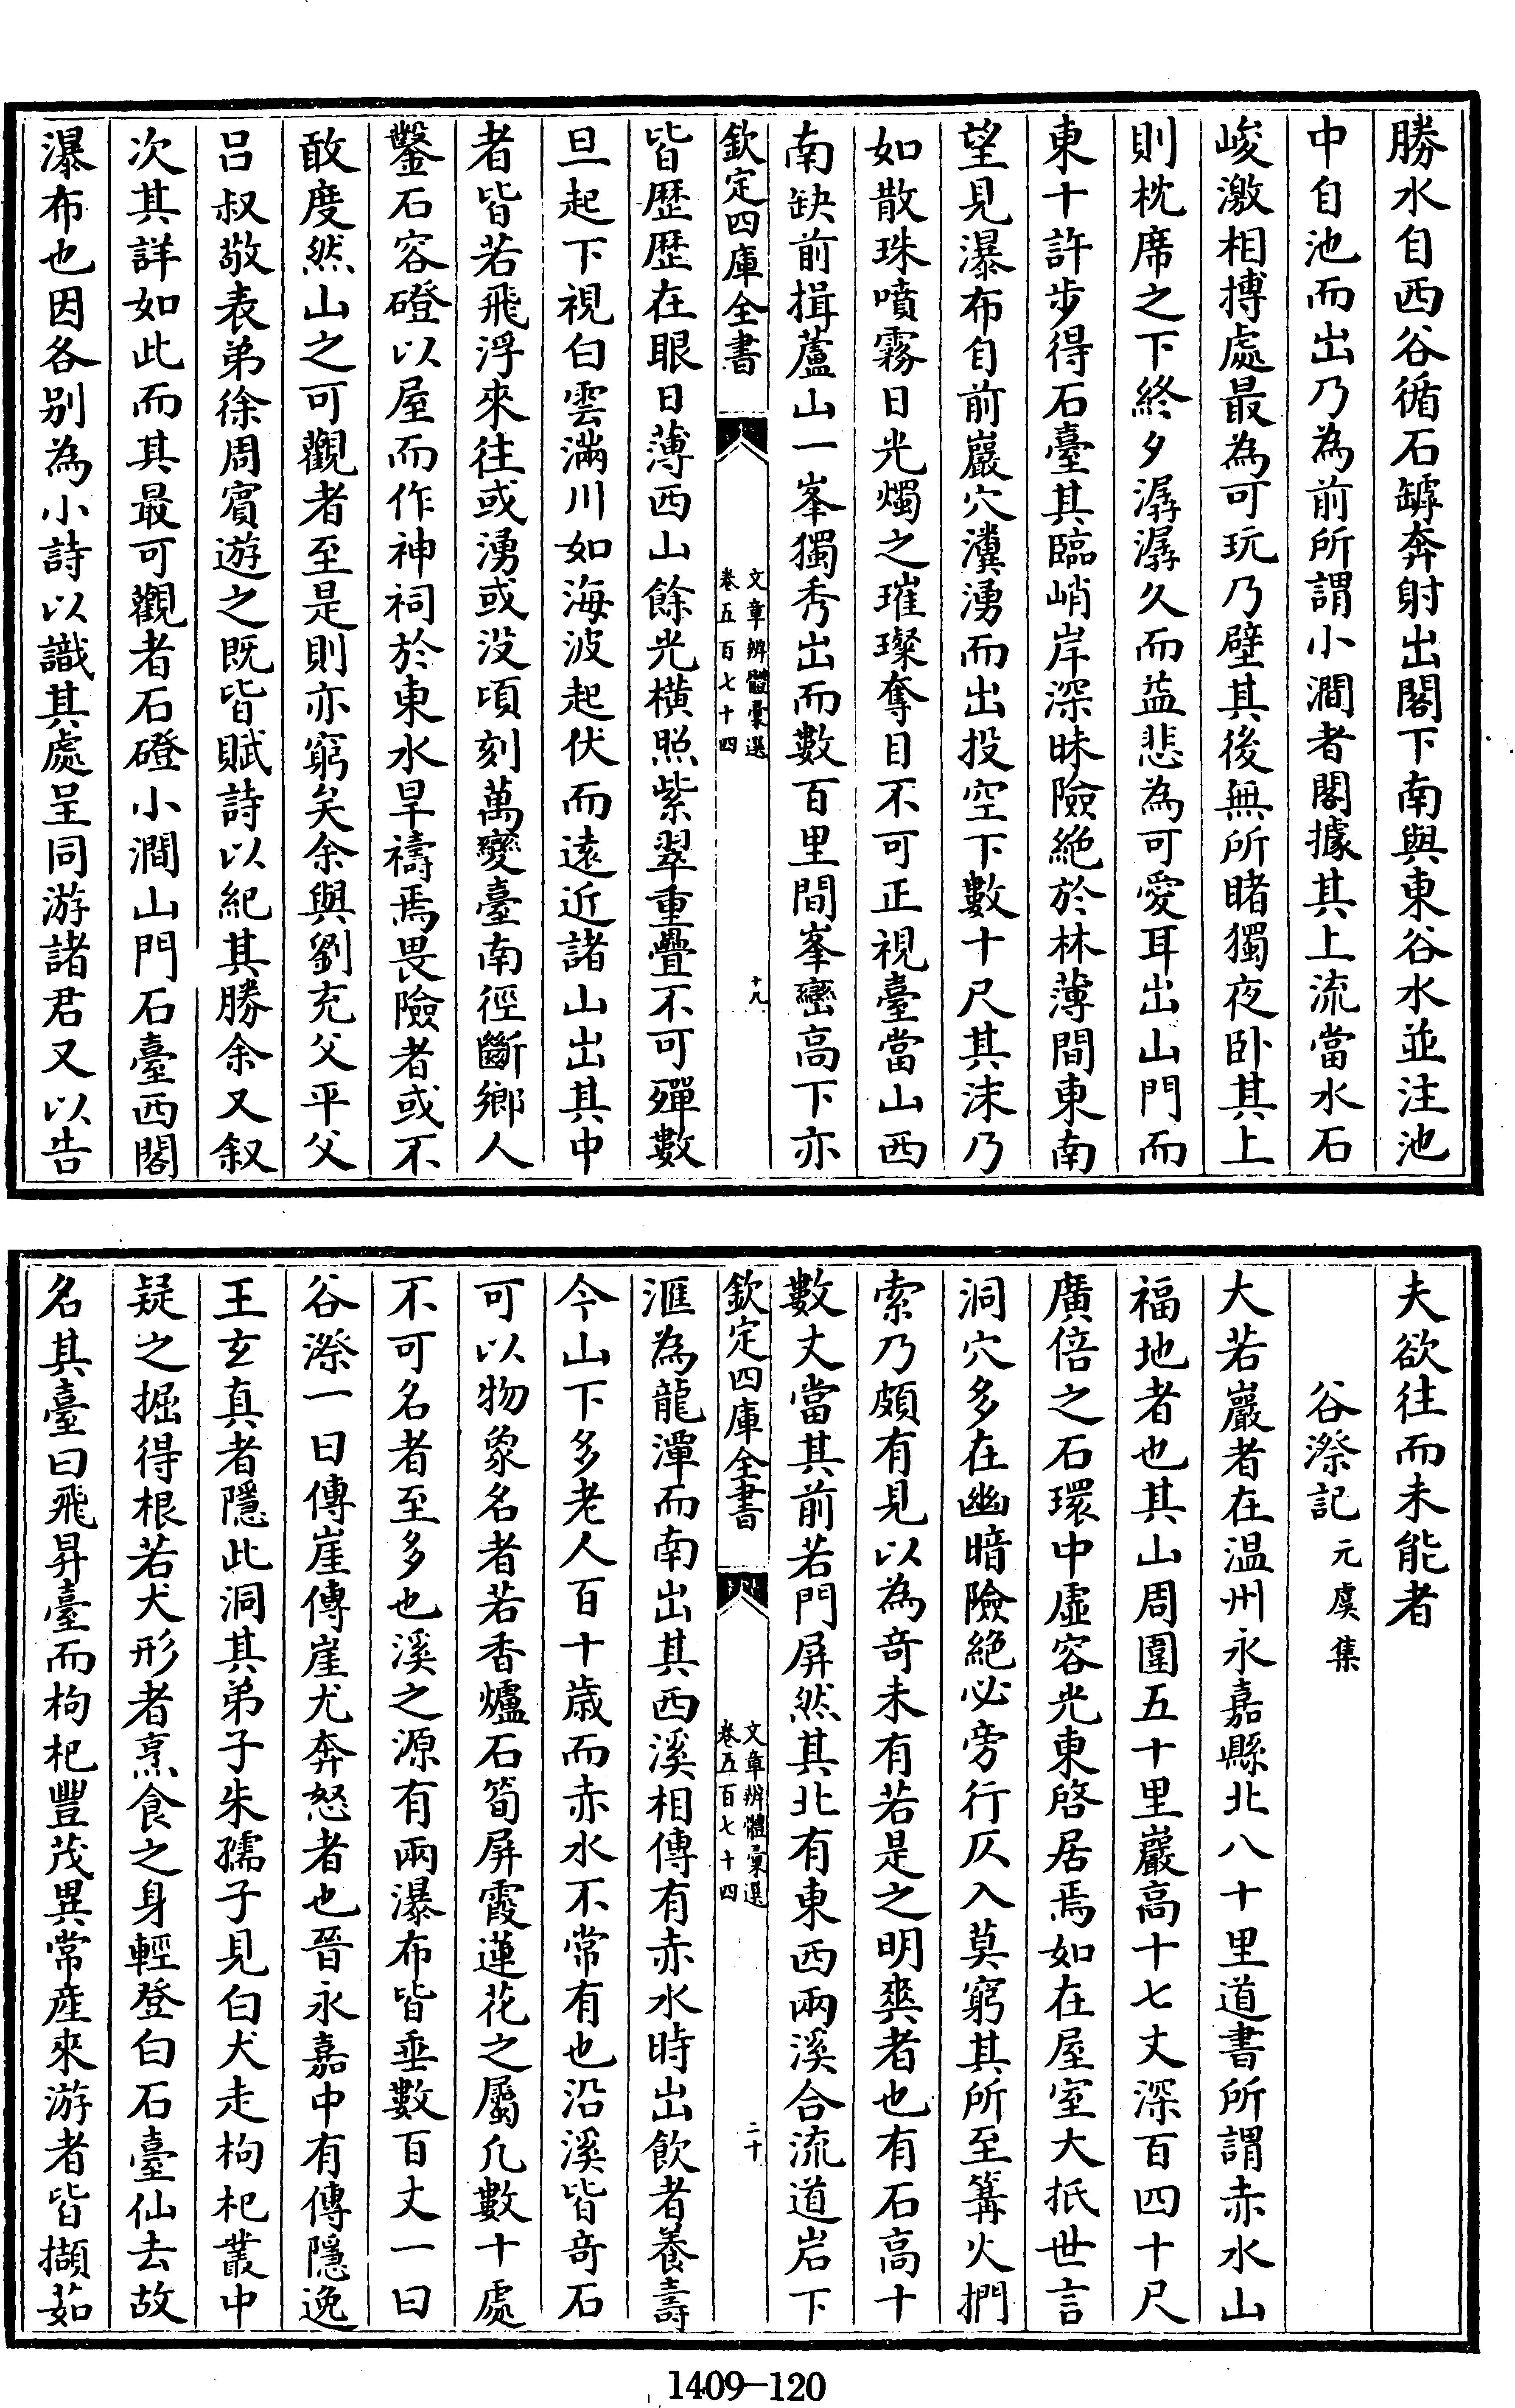 勝水自西谷循石罅奔射出閣下南與東谷水並注池
中自池而出乃為前所謂小澗者閣據其上流當水石
峻激相搏處最為可玩乃壁其後無所睹獨夜卧其上
則枕席之下終夕潺潺久而益悲為可愛耳出山門而
東十許步得石臺其臨峭岸深昧險絶於林薄間東南
望見瀑布自前巖穴瀵湧而出投空下數十尺其沫乃
如散珠噴霧日光燭之璀璨奪目不可正視臺當山西
南缺前揖蘆山一峯獨秀出而數百里間峯巒高下亦
欽定四庫全書
文章辨體彙選
卷五百七十四
十九
皆歴歴在眼日薄西山餘光橫照紫翠重疊不可殫數
旦起下視白雲滿川如海波起伏而逺近諸山出其中
者皆若飛浮來往或湧或没頃刻萬變臺南徑斷鄉人
鑿石容磴以屋而作神祠於東水旱禱焉畏險者或不
敢度然山之可觀者至是則亦窮矣余與劉充父平父
吕叔敬表弟徐周賓遊之既皆賦詩以紀其勝余又叙
次其詳如此而其最可觀者石磴小澗山門石臺西閣
瀑布也因各别為小詩以識其處呈同游諸君又以告
夫欲往而未能者
谷漈記 元虞集
大若巖者在温州永嘉縣北八十里道書所謂赤水山
福地者也其山周圍五十里巖高十七丈深百四十尺
廣倍之石環中虚容光東啓居焉如在屋室大抵世言
洞穴多在幽暗險絶必旁行仄入莫窮其所至篝火捫
索乃頗有見以為竒未有若是之明爽者也有石高十
數丈當其前若門屏然其北有東西兩溪合流道岩下
欽定四庫全書
文章辨體彙選
卷五百七十四
二十
滙為龍潭而南出其西溪相傳有赤水時出飲者養壽
今山下多老人百十歲而赤水不常有也沿溪皆竒石
可以物象名者若香爐石筍屏霞蓮花之屬凡數十處
不可名者至多也溪之源有兩瀑布皆垂數百丈一曰
谷漈一曰傳崖傳崖尤奔怒者也晉永嘉中有傳隱逸
王玄真者隱此洞其弟子朱孺子見白犬走枸杞叢中
疑之掘得根若犬形者烹食之身輕登白石臺仙去故
名其臺曰飛昇臺而枸杞豐茂異常産來游者皆擷茹
1409-120